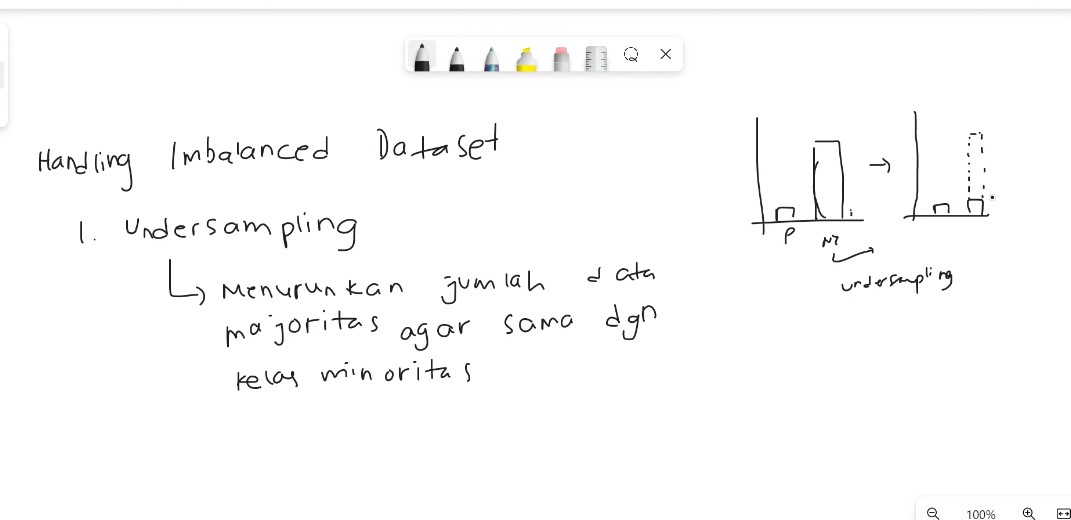 Handling Imbalanced Dataset
1. Undersampling
Menurunkan jumlah data
majoritas agar sama dgn
kelas minoritas
P
undersampling
100%